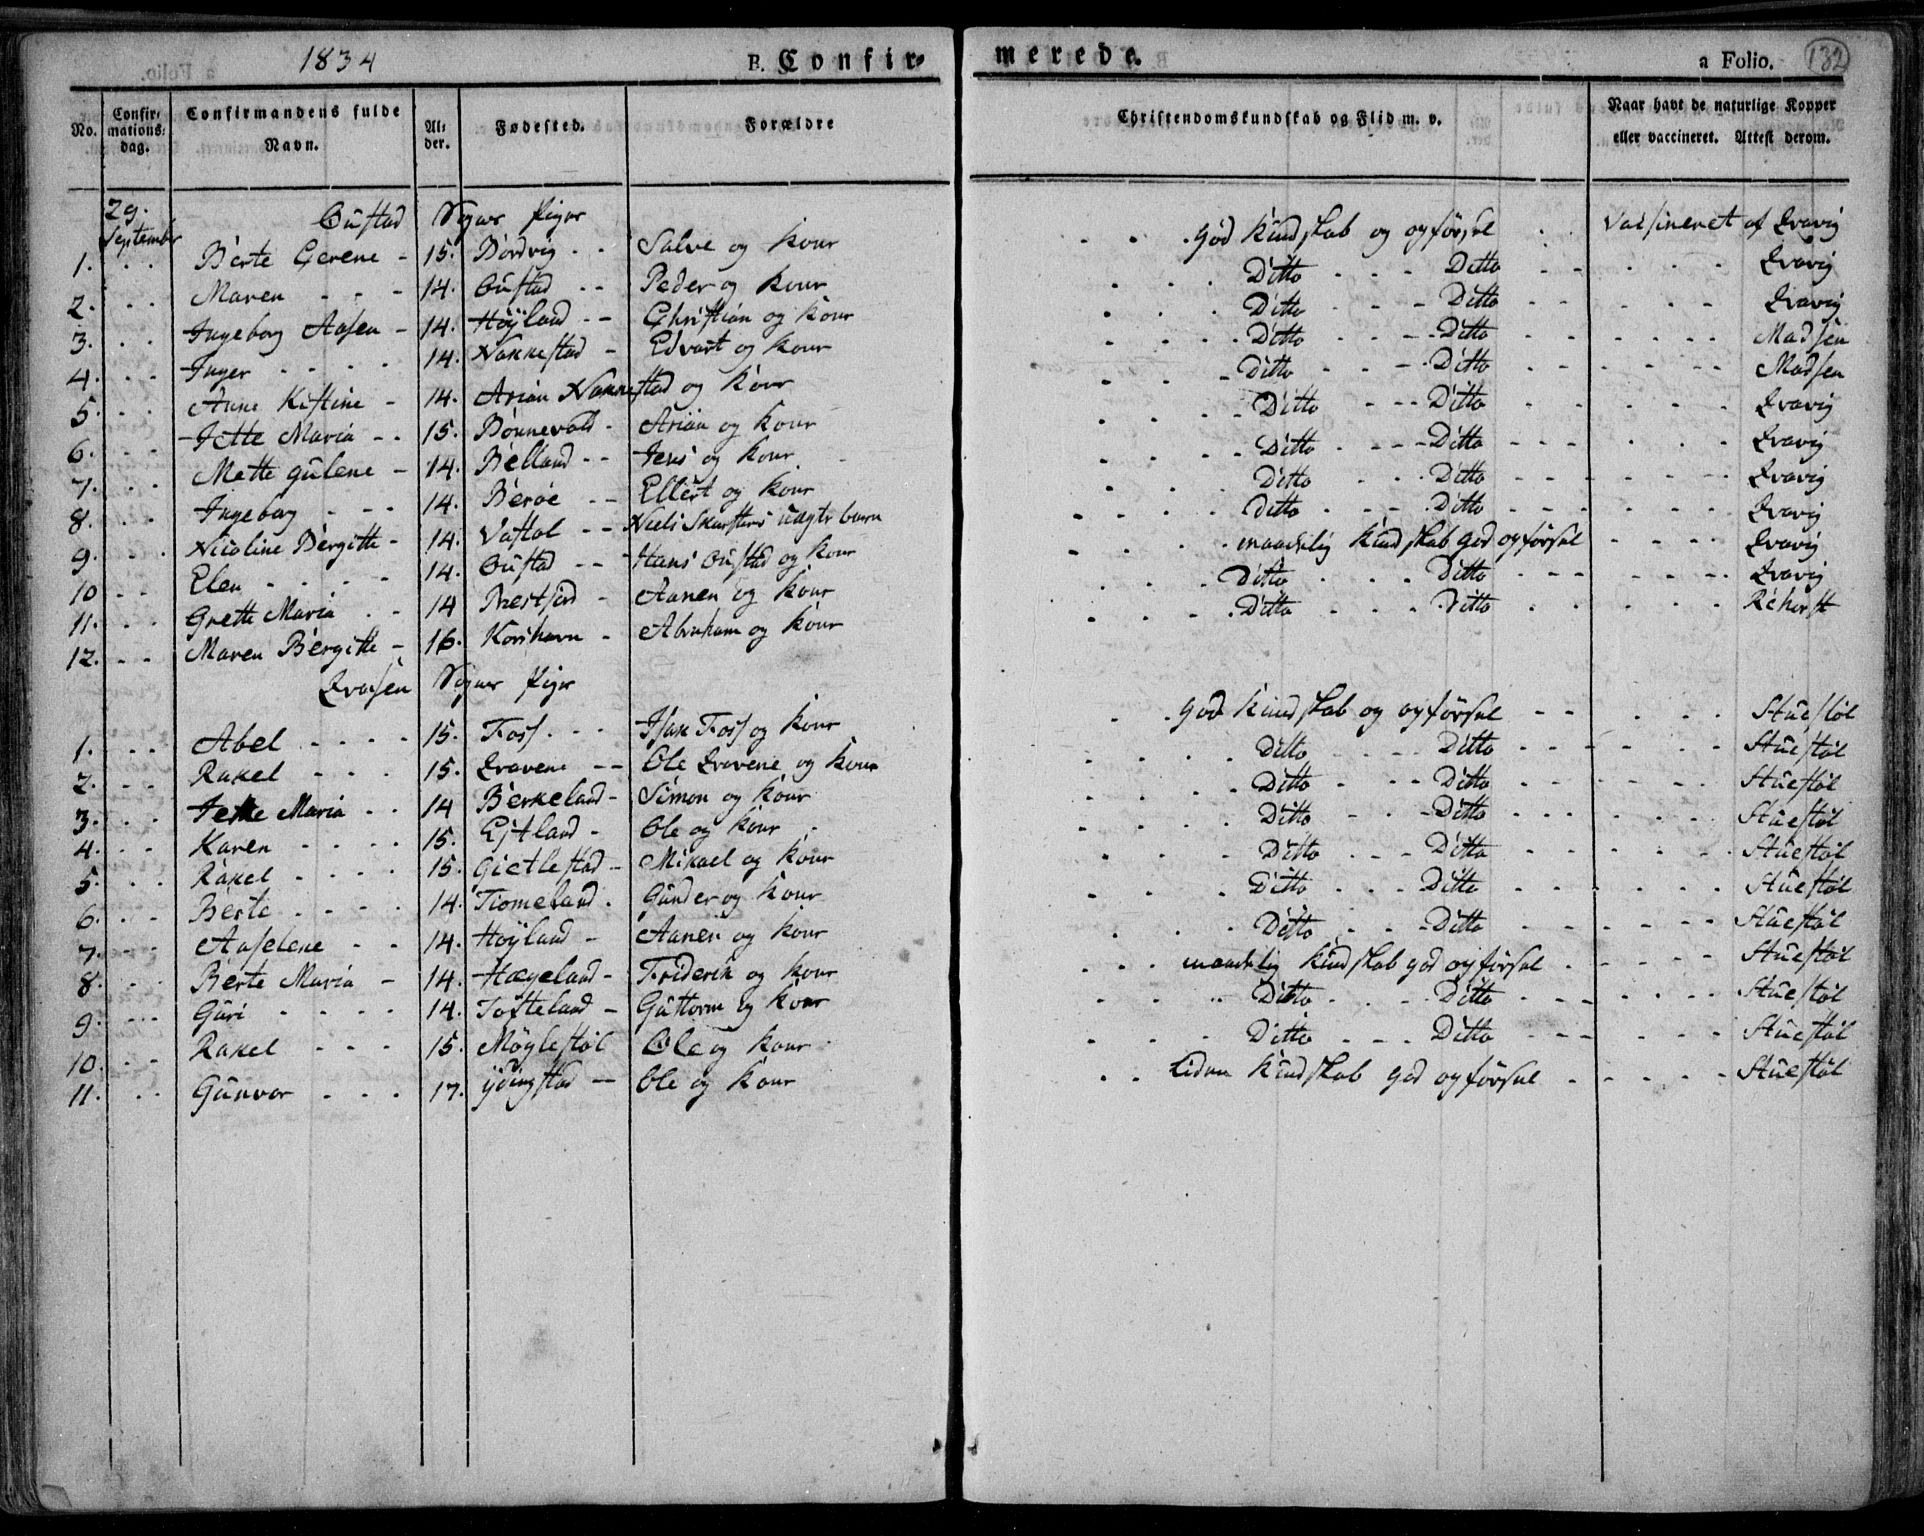 1834 B. Confir- merede. a Folio. 132
No. Confirmations-dag. Confirmandens fulde Navn. Alder. Fødested. Forældre Christendomskundskab og Flid m. v. Naar havt de naturlige Kopper eller vaccineret. Attest derom.
29. September
Oustad Sogns Piger
1. Berte Gerene - 15. Salve og Kone God Kundskab og opførsel Vacsineret af Qvavig
2. Maren 14. Oustad Peder og Kone Ditto Ditto Qvavig
3. Ingeborg Aasen - 14. Höyland Christian og Kone Ditto Ditto Qvavig
4. Inger 14. Nakkestad - Edvart og Kone Ditto Ditto Madsen
5. Anne Kistine - 14. Arian Nakkestad og Kone Ditto Ditto Madsen
6. Jette Maria 15. Bønnevold - Arian og Kone Ditto Ditto Qvavig
7. Mette Gulene - 14. Belland Jens og Kone Ditto Ditto Qvavig
8. Ingeborg 14. Berøe Ellert og Kone Ditto Ditto Qvavig
9. Nicoline Bergitte - 14. Vastøl Niels uægte barn Ditto Ditto Qvavig
10 Elen 14. Oustad Hans Oustad og Kone maadelig Kundskab god opførsel Qvavig
11. Grette Maria 14 Prestfiord - Aanen og Kone Ditto Ditto Qvavig
12. Maren Bergitte - 16. Korshavn - Abraham og Kone Ditto Ditto
Qvaasen Sogns Piger
1. Abel 15. Foss Isak Foss og Kone God Kundskab og opførsel Stuestøl
2. Rakel 15. Qvavene Ole Qvavene og Kone Ditto Ditto Stuestøl
3. Maria 14 Berkeland - Simon og Kone Ditto Ditto Stuestøl
4. Karen 15. Eftland - Ole og Kone Ditto Ditto Stuestøl
5. Rakel 15. Gietlestad - Mikael og Kone Ditto Ditto Stuestøl
6. Berte 14. Tiomeland Gunder og Kone Ditto Ditto Stuestøl
7. Aaselene 14. Höyland - Aanen og Kone Ditto Ditto Stuestøl
8. Berte Maria - 14. Hægeland - Friderik og Kone maadelig Kundskab god opførsel Stuestøl
9. Guri 14. Tofteland - Guttorm og Kone Ditto Ditto Stuestøl
10. Rakel 15. Möglestøl Ole og Kone Ditto Ditto Stuestøl
11. Gunvor 17. Ydingstad Ole og Kone Liden Kundskab god opførsel Stuestøl